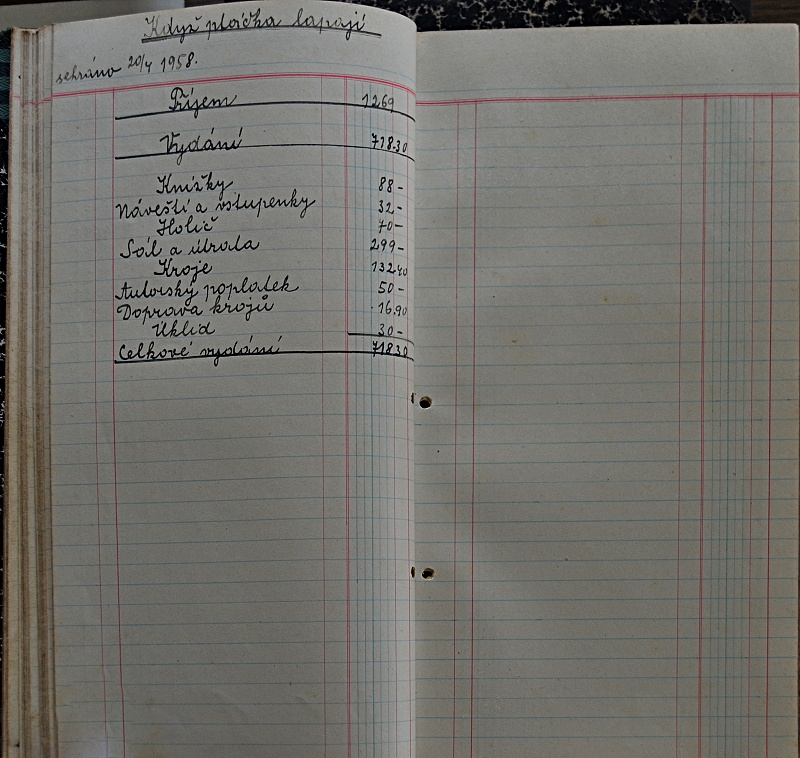 Když ptáčka lapají
sehráno 20/4 1958.
Příjem 1269
Vydání 718.30
Knížky 88-
Návěští a vstupenky 32-
Holič 70-
Sál a útrata 299-
Kroje 132.40
Autorský poplatek 50-
Doprava krojů 16.90
Úklid 30-
Celkové vydání 718.30